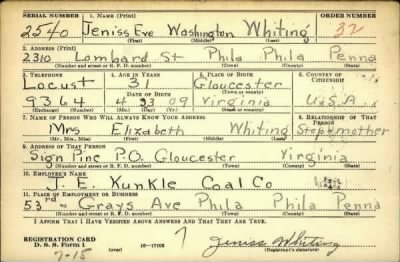 SERIAL NUMBER 1. NAME (Print) ORDER NUMBER
2540 Jeniss Eve Washington Whiting 32
(First) (Middle) (Last)
2. ADDRESS (Print)
2310 Lombard St Phila Phila Penna
(Number and street or R. F. D. number) (Town) (County) (State)
3. TELEPHONE 4. AGE IN YEARS 5. PLACE OF BIRTH 6. COUNTRY OF CITIZENSHIP
Locust 31 Gloucester
DATE OF BIRTH (Town or county)
9364 4 23 09 Virginia U.S.A.
(Exchange) (Number) (Mo.) (Day) (Yr.) (State or country)
7. NAME OF PERSON WHO WILL ALWAYS KNOW YOUR ADDRESS 8. RELATIONSHIP OF THAT PERSON
Mrs Elizabeth Whiting Stepmother
(Mr., Mrs., Miss) (First) (Middle) (Last)
9. ADDRESS OF THAT PERSON
Sign Pine P.O. Gloucester Virginia
(Number and street or R. F. D. number) (Town) (County) (State)
10. EMPLOYER'S NAME
J. E. Kunkle Coal Co
11. PLACE OF EMPLOYMENT OR BUSINESS
53rd Grays Ave Phila Phila Penna
(Number and street or R. F. D. number) (Town) (County) (State)
I AFFIRM THAT I HAVE VERIFIED ABOVE ANSWERS AND THAT THEY ARE TRUE.
REGISTRATION CARD
D. S. S. Form 1 (over) 16—17105 7 Jeniss Whiting
7-15 (Registrant's signature)